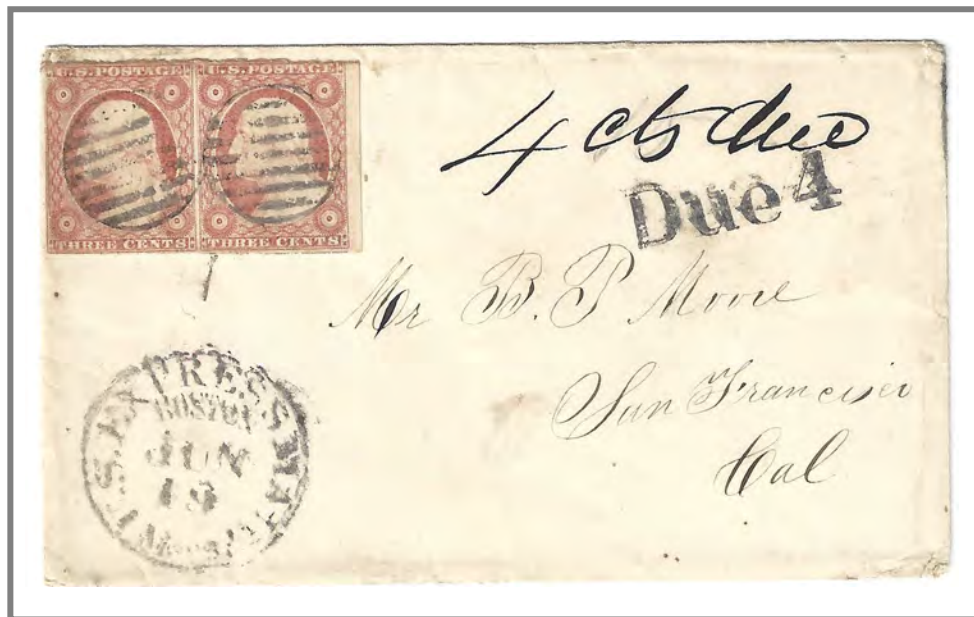 U.S. POSTAGE U.S. POSTAGE
THREE CENTS THREE CENTS
4 cts due
Due 4
Mr B. P Moore
San Francisco
Cal
U.S. EXPRESS MAIL
BOSTON
JUN
19
Mass.